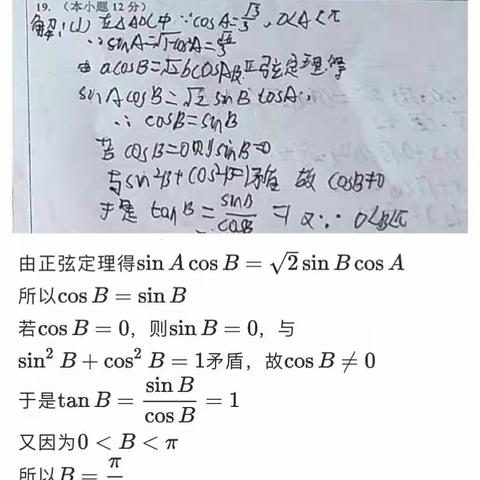 19. （本小题 12 分）
解:(1) 在△ABC中 ∵cosA=√3/3, 0<A<π
∴sinA=√1-cos²A=√6/3
由 acosB=√2bcosA及正弦定理得
sinAcosB=√2 sinB cosA
∴ cosB=sinB
若 cosB=0则sinB=0
与sin²B+cos²B=1矛盾 故 cosB≠0
于是 tanB=sinB/cosB=1 又∵ 0<B<π
由正弦定理得sin A cos B = √2 sin B cos A
所以cos B = sin B
若cos B = 0，则sin B = 0，与
sin² B + cos² B = 1矛盾，故cos B ≠ 0
于是tan B = sin B / cos B = 1
又因为0 < B < π
所以 B = π